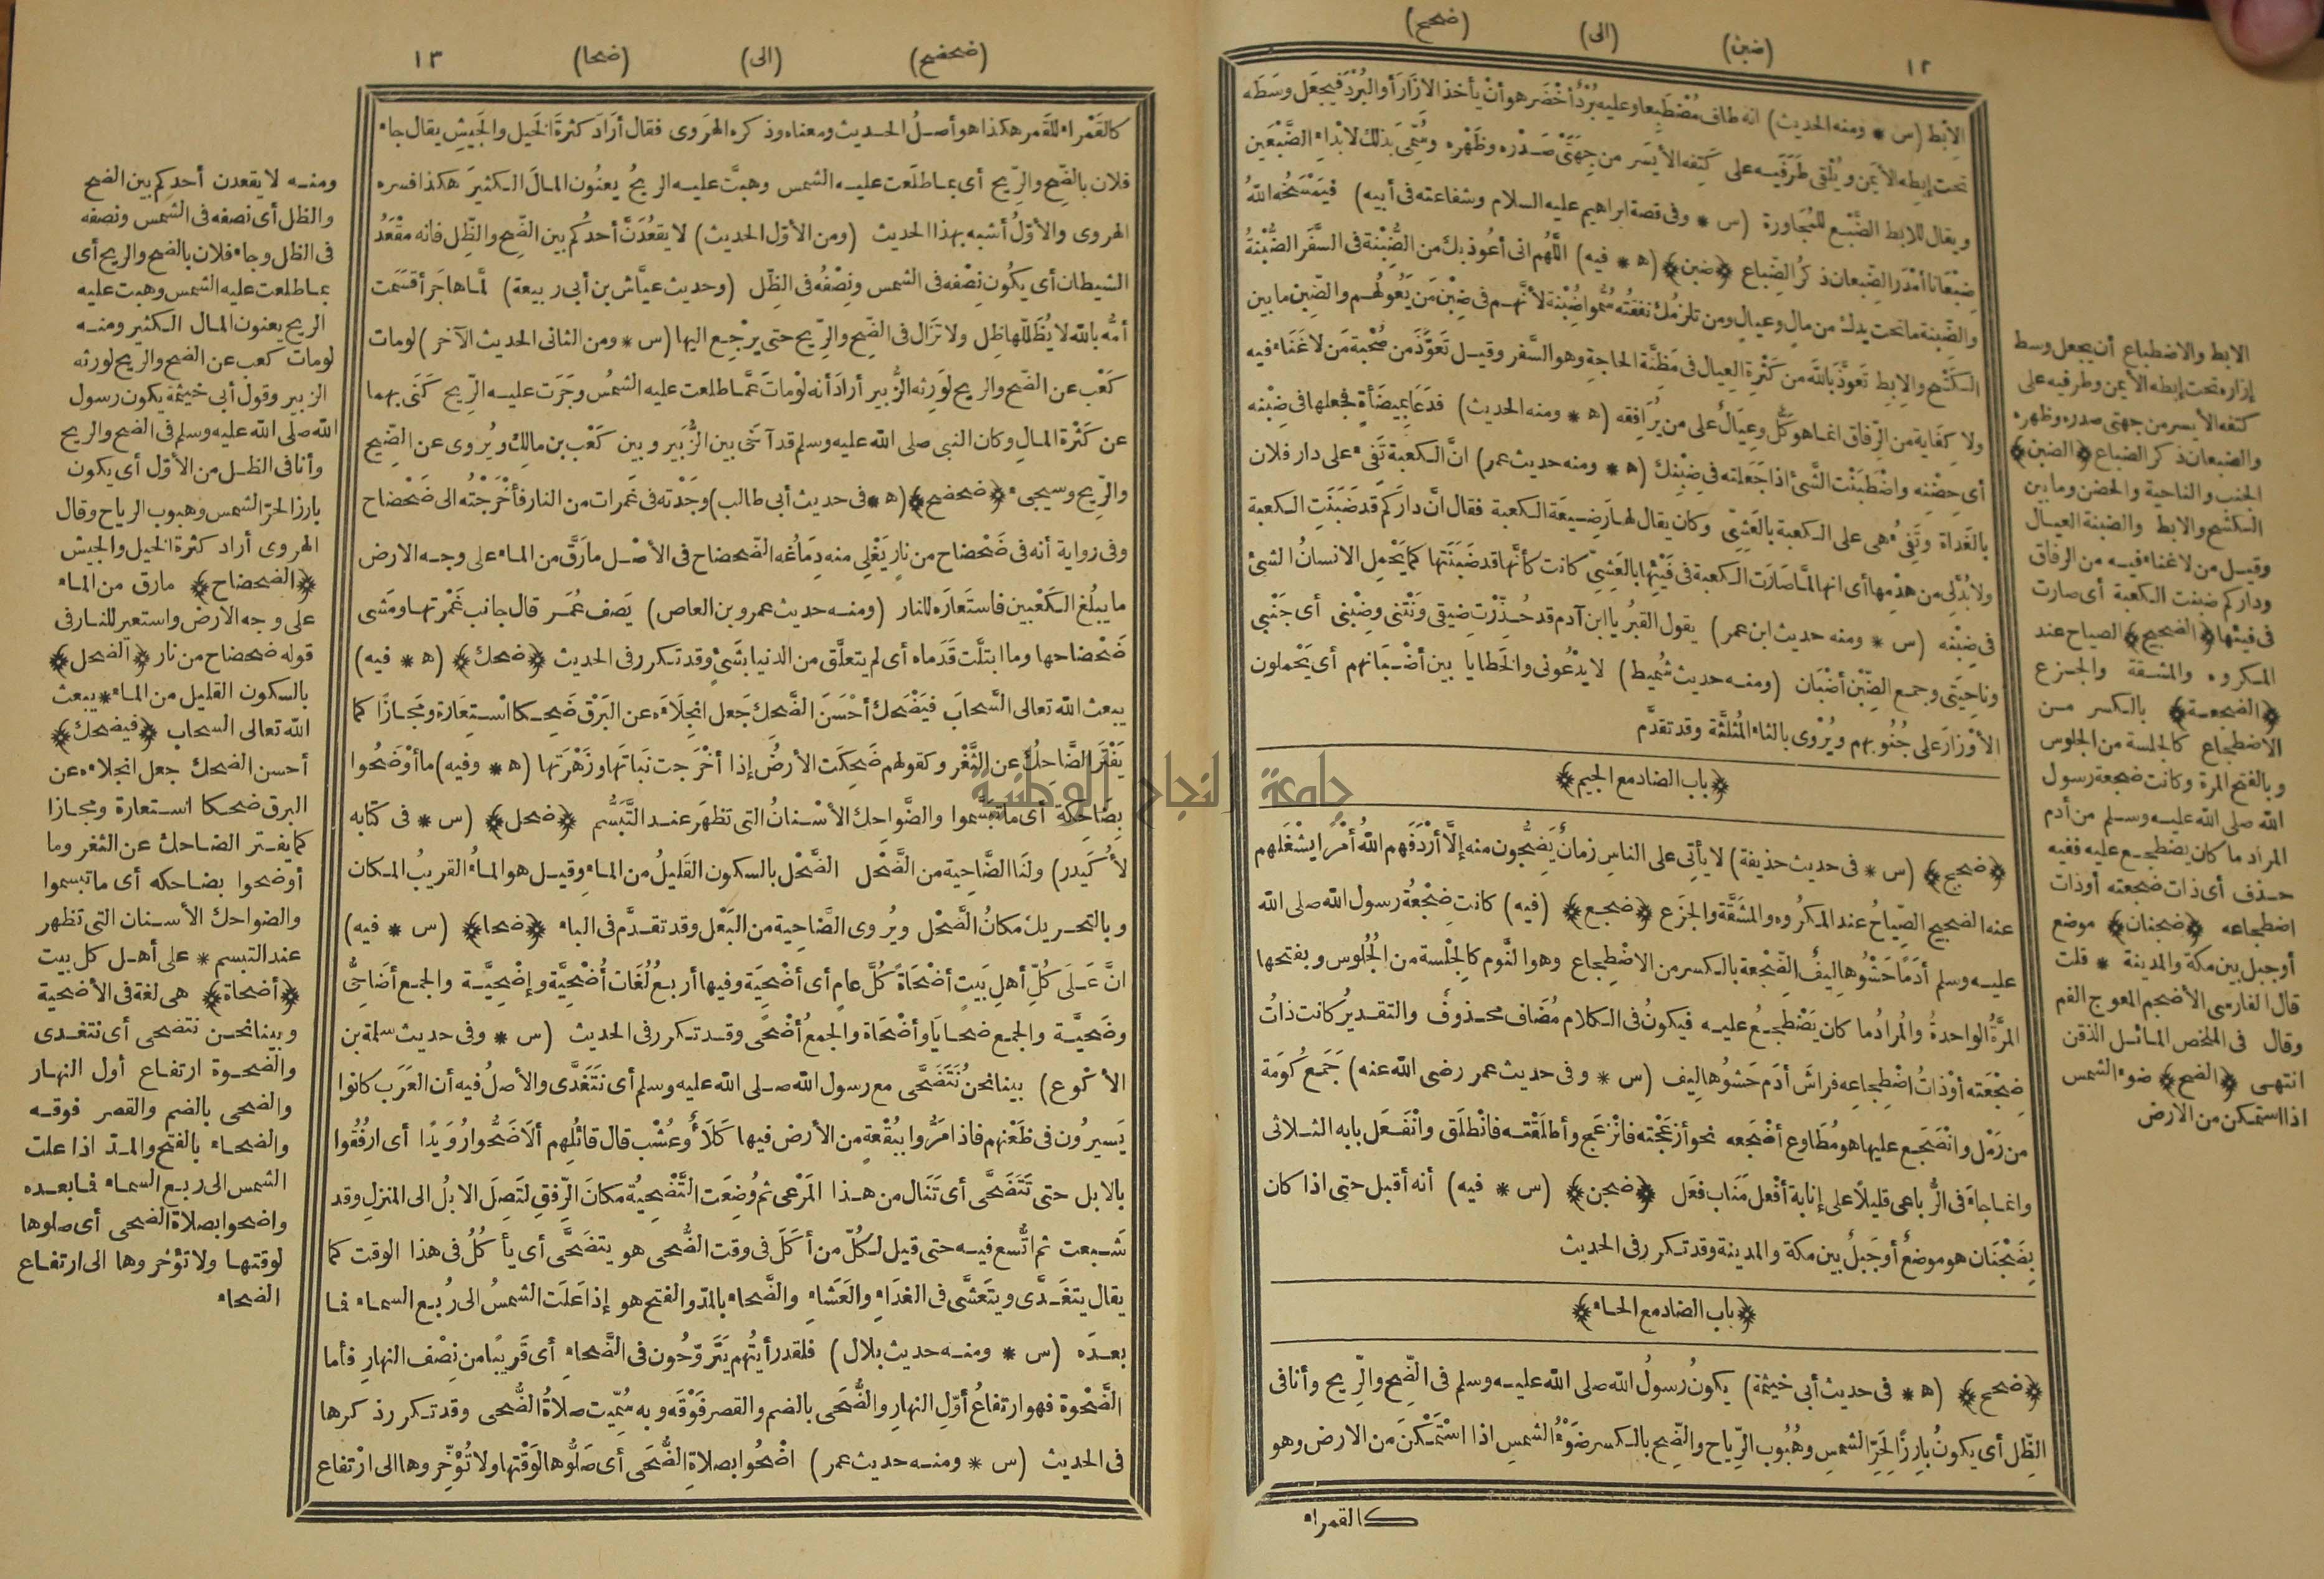 ١٢ (ضبن) (الى) (ضحح)
الإبْط (س * ومنه الحديث) انه طاف مُضْطَبِعا وعليه بُرْدٌ أخْضَر هو أنْ يأخذ الازَارَ أو البُرْدَ فيجعَل وسَطَه
تحت إبطِه الأيمَن ويُلْقِى طَرَفَيه على كَتِفه الأيسَر من جِهَتَىْ صَدْره وظَهْره وسُمِّىَ بذلك لابْداءِ الضَّبْعَين
ويقال للابط الضَّبْع للمُجَاورة (س * وفى قصة ابراهيم عليه السلام وشفاعته فى أبيه) فيَمْسَخُه اللهُ
ضِبْعَانا أمْدَر الضِّبعان ذكرُ الضِّباع ﴿ضبن﴾ (ه * فيه) اللَّهُم انى أعُوذ بك من الضُّبْنَة فى السَّفَر الضُّبْنةُ
والضِّبنة ما تحت يدك من مالٍ وعيالٍ ومن تلزمُك نفقتُه سُمُّوا ضُبْنة لأنَّهم فى ضِبْن مَن يَعُولُهم والضِبْن ما بين
الكَشْح والإبِط تَعوَّذ بالله من كَثْرِة العِيال فى مَظِنَّة الحاجةِ وهو السَّفر وقيل تَعوَّذَ من صُحْبة مَن لا غَنَاء فيه
ولا كِفَاية من الرِّفاق انما هو كَلٌّ وعِيَالٌ على من يُرَافِقه (ه * ومنه الحديث) فدَعَا بِميضَأةٍ فجعلها فى ضِبْنه
أى حِضْنِه واضْطَبَنْت الشَّىْ اذا جَعَلته فى ضِبْنِك (ه * ومنه حديث عمر) انَّ الكعبة تَفِىء على دار فلان
بالغَداة وتَفِىءُ هى على الكعبة بالعَشِىِّ وكان يقال لها رَضِيعَة الكعبة فقال انَّ دارَكم قد ضَبَنَتِ الكعبة
ولا بُدَّ لِى من هدْمِها أى انها لمَّا صَارَت الكعبة فى فَيْئِها بالعَشِىّ كانت كأنَّها قد ضَبَنَتْها كما يَحْمِل الانسانُ الشئ
فى ضِبْنه (س * ومنه حديث ابن عمر) يقول القبرُ يا ابن آدم قد حُذِّرْت ضِيقى ونَتْنى وضِبْنى أى جَنْبي
وناحِيَتى وجمع الضِّبْن أضْبَان (ومنه حديث شُميط) لا يدْعُونى والخَطايا بين أضْبَانهم أى يَحْملون
الأوْزارَ على جُنُوبهم ويُرْوى بالثاء المُثلثَّة وقد تقدَّم
﴿باب الضاد مع الجيم﴾
﴿ضجج﴾ (س * فى حديث حذيفة) لا يأتِى على الناسِ زمانٌ يَضِجُّون منه إلَّا أرْدَفَهم اللهُ أمْرًا يشْغَلهم
عنه الضجيج الصِّياحُ عند المكرُوه والمشَقَّة والجزَع ﴿ضجع﴾ (فيه) كانت ضِجْعةُ رسول الله صلى الله
عليه وسلم أدَمًا حَشْوُها لِيفٌ الضِّجْعة بالكسر من الاضْطِجاع وهو النَّوم كالجِلْسة من الجُلوس وبفتحها
المرَّةُ الواحدةُ والمُرادُ ما كان يَضْطجعُ عليه فيكونُ فى الكلام مُضَاف محذوفٌ والتقديرُ كانت ذاتُ
ضِجْعَته أوْ ذاتُ اضْطِجاعِه فراشَ أدَم حَشوُها لِيف (س * وفى حديث عمر رضى الله عنه) جَمَع كُومَة
من رَمْل وانْضَجَع عليها هو مُطَاوع أضْجَعه نحو أزعَجْته فانْزعَجَ وأطلَقْته فانْطلَق وانْفَعَل بابه الثلاثى
وانما جاءَ فى الرُّباعى قليلًا على إنابة أفْعل مَنَاب فعَل ﴿ضجن﴾ (س * فيه) أنه أقبل حتى اذا كان
بِضَجْنَان هو موضعٌ أو جَبلٌ بين مكة والمدينة وقد تكرر فى الحديث
﴿باب الضاد مع الحاء﴾
﴿ضحح﴾ (ه * فى حديث أبى خيثمة) يكونُ رسولُ الله صلى الله عليه وسلم فى الضِّح والرِّيح وأنا فى
الظِّل أى يكونُ بارِزًا لحَرِّ الشمسِ وهُبُوب الرِّياح والضِّح بالكسر ضَوْءُ الشمس اذا اسْتَمْكنَ من الارض وهو
كالقمراء
الابط والاضطباع أن يجعل وسط
إزاره تحت إبطه الأيمن وطرفيه على
كتفه الأيسر من جهتى صدره وظهره
والضبعان ذكر الضباع ﴿الضبن﴾
الجنب والناحية والحضن وما بين
الكشح والابط والضبنة العيال
وقيل من لا غناء فيه من الرفاق
وداركم ضبنت الكعبة أى صارت
فى فيئها ﴿الضجيج﴾ الصياح عند
المكروه والمشقة والجزع
﴿الضجعة﴾ بالكسر من
الاضطجاع كالجلسة من الجلوس
وبالفتح المرة وكانت ضجعة رسول
الله صلى الله عليه وسلم من أدم
المراد ما كان يضطجع عليه ففيه
حذف أى ذات ضجعته أو ذات
اضطجاعه ﴿ضجنان﴾ موضع
أو جبل بين مكة والمدينة * قلت
قال الفارسى الأضجم المعوج الفم
وقال فى الملخص المائل الذقن
انتهى ﴿الضح﴾ ضوء الشمس
اذا استمكن من الارض
(ضحضح) (الى) (ضحا) ١٣
كالقَمْراء للقَمر هكذا هو أصلُ الحديث ومعناه وذكره الهرَوى فقال أرَادَ كثرةَ الخيل والجَيشِ يقال جاء
فلان بالضِّح والرِّيح أى بما طلَعت عليه الشمس وهبَّت عليه الريحُ يعنُون المالَ الكثيرَ هكذا فسره
الهروى والأوّلُ أشبه بهذا الحديث (ومن الأوّل الحديث) لا يقعُدَنَّ أحدُكم بين الضِّح والظِّل فانه مقْعَدُ
الشيطان أى يكُون نِصْفه فى الشمس ونِصْفُه فى الظِّل (وحديث عيَّاش بن أبى ربيعة) لمَّا هاجَر أقسَمت
أمُّه بالله لا يُظَلّلها ظِل ولا تَزَال فى الضِّح والرِّيح حتى يرْجِع اليها (س * ومن الثانى الحديث الآخر) لو مات
كَعْب عن الضِّح والريح لوَرِثه الزُّبير أرادَ أنه لوْ ماتَ عمَّا طلعت عليه الشمسُ وجَرَت عليه الرِّيح كَنَى بهما
عن كَثْرة المالِ وكان النبى صلى الله عليه وسلم قد آخَى بين الزُّبَير وبين كَعْب بن مالِك ويُروى عن الضِّيح
والرِّيح وسيجىء ﴿ضحضح﴾ (ه * فى حديث أبى طالب) وجَدْته فى غَمرات من النار فأخْرَجْتُه الى ضَحْضاح
وفى رواية أنه فى ضَحْضاح من نارٍ يَغْلِى منه دِمَاغُه الضَّحضاح فى الأصْل ما رَقَّ من الماءِ على وجه الارض
ما يبلُغ الكَعْبين فاستَعارَه للنار (ومنه حديث عمرو بن العاص) يَصف عُمَر قال جانب غَمْرتها ومَشى
ضَحْضاحها وما ابتلَّت قَدَماه أى لم يتعلَّق من الدنيا بشَىْ وقد تكرر فى الحديث ﴿ضحك﴾ (ه * فيه)
يبعث الله تعالى السَّحاب فيَضْحَك أحْسَنَ الضَّحِكَ جَعل انجِلَاءَه عن البَرْق ضَحِكا اسْتِعارَة ومَجازًا كما
يَفْتَر الضَّاحِكُ عن الثَّغْر وكقولهم ضَحِكَت الأرضُ إذا أخْرَجت نَباتَها وزَهْرَتها (ه * وفيه) ما أوْضَحُوا
بِضَاحِكَة أى ما تَبَسَّموا والضَّواحِك الأسْنانُ التى تظهَر عند التَّبَسُّم ﴿ضحل﴾ (س * فى كتابه
لأكَيدر) ولنَا الضَّاحِية من الضَّحْل الضَّحْل بالسكون القَليلُ من الماءِ وقيل هو الماءُ القريبُ المكان
وبالتحريك مكانُ الضَّحْل ويُروى الضَّاحِية من البَعْل وقد تقدَّم فى الباء ﴿ضحا﴾ (س * فيه)
انَّ عَلَى كُلِّ أهلِ بَيتٍ أضْحَاةً كُلَّ عامٍ أى أضْحِيَة وفيها أربعُ لُغَات أُضْحِيَّة وإضْحِيَّة والجمع أضَاحِىُّ
وضَحيَّة والجمع ضحايَا وأضْحَاة والجمعُ أضْحًى وقد تكرر فى الحديث (س * وفى حديث سلمة بن
الأكْوع) بينا نحنُ نَتَضَحَّى مع رسول الله صلى الله عليه وسلم أى نَتَغَدَّى والأصلُ فيه أن العَرَب كانوا
يَسيرُون فى ظَعْنهم فاذا مَرُّوا ببُقْعةٍ من الأرض فيها كَلَأٌ وعُشْب قال قائلُهم ألَا ضَحُّوا رُوَيدًا أى ارْفُقُوا
بالابل حتى تَتَضَحَّى أى تَنَال من هذا المَرْعى ثم وُضِعَت التَّضْحِيةُ مكانَ الرِّفقِ لتَصِلَ الابلُ الى المنزلِ وقد
شَبعت ثم اتَّسع فيه حتى قيل لكُلِّ من أكَلَ فى وقت الضُّحى هو يتضَحَّى أى يأكُلُ فى هذا الوقت كما
يقال يتغَدَّى ويتعَشَّى فى الغدَاءِ والعَشَاءِ والضَّحاءُ بالمدّ والفتح هو إذا عَلَت الشمسُ الى رُبع السماء فما
بعدَه (س * ومنه حديث بلال) فلقد رأيتُهم يَترَوّحُون فى الضَّحاءِ أى قَريبًا من نِصْف النهارِ فأما
الضَّحْوة فهو ارتفاعُ أوّل النهارِ والضُّحَى بالضم والقصر فَوْقَه وبه سُمِّيت صلاةُ الضُّحى وقد تكرر ذكرها
فى الحديث (س * ومنه حديث عمر) اضْحُوا بصلاةِ الضُّحَى أى صَلُّوها لوَقْتِها ولا تُؤَخِّروها الى ارْتفاع
ومنه لا يقعدن أحدكم بين الضح
والظل أى نصفه فى الشمس ونصفه
فى الظل وجاء فلان بالضح والريح أى
بما طلعت عليه الشمس وهبت عليه
الريح يعنون المال الكثير ومنه
لو مات كعب عن الضح والريح لورثه
الزبير وقول أبى خيثمة يكون رسول
الله صلى الله عليه وسلم فى الضح والريح
وأنا فى الظل من الأوّل أى يكون
بارزا لحرّ الشمس وهبوب الرياح وقال
الهروى أراد كثرة الخيل والجيش
﴿الضحضاح﴾ مارق من الماء
على وجه الارض واستعير للنار فى
قوله ضحضاح من نار ﴿الضحل﴾
بالسكون القليل من الماء * يبعث
الله تعالى السحاب ﴿فيضحك﴾
أحسن الضحك جعل انجلاءه عن
البرق ضحكا استعارة ومجازا
كما يفتر الضاحك عن الثغر وما
أوضحوا بضاحكه أى ما تبسموا
والضواحك الأسنان التى تظهر
عند التبسم * على أهل كل بيت
﴿أضحاة﴾ هى لغة فى الأضحية
وبينا نحن نتضحى أى نتغدى
والضحوة ارتفاع أول النهار
والضحى بالضم والقصر فوقه
والضحاء بالفتح والمدّ اذا علت
الشمس الى ربع السماء فما بعده
واضحوا بصلاة الضحى أى صلوها
لوقتها ولا تؤخروها الى ارتفاع
الضحاء
جامعة النجاح الوطنية